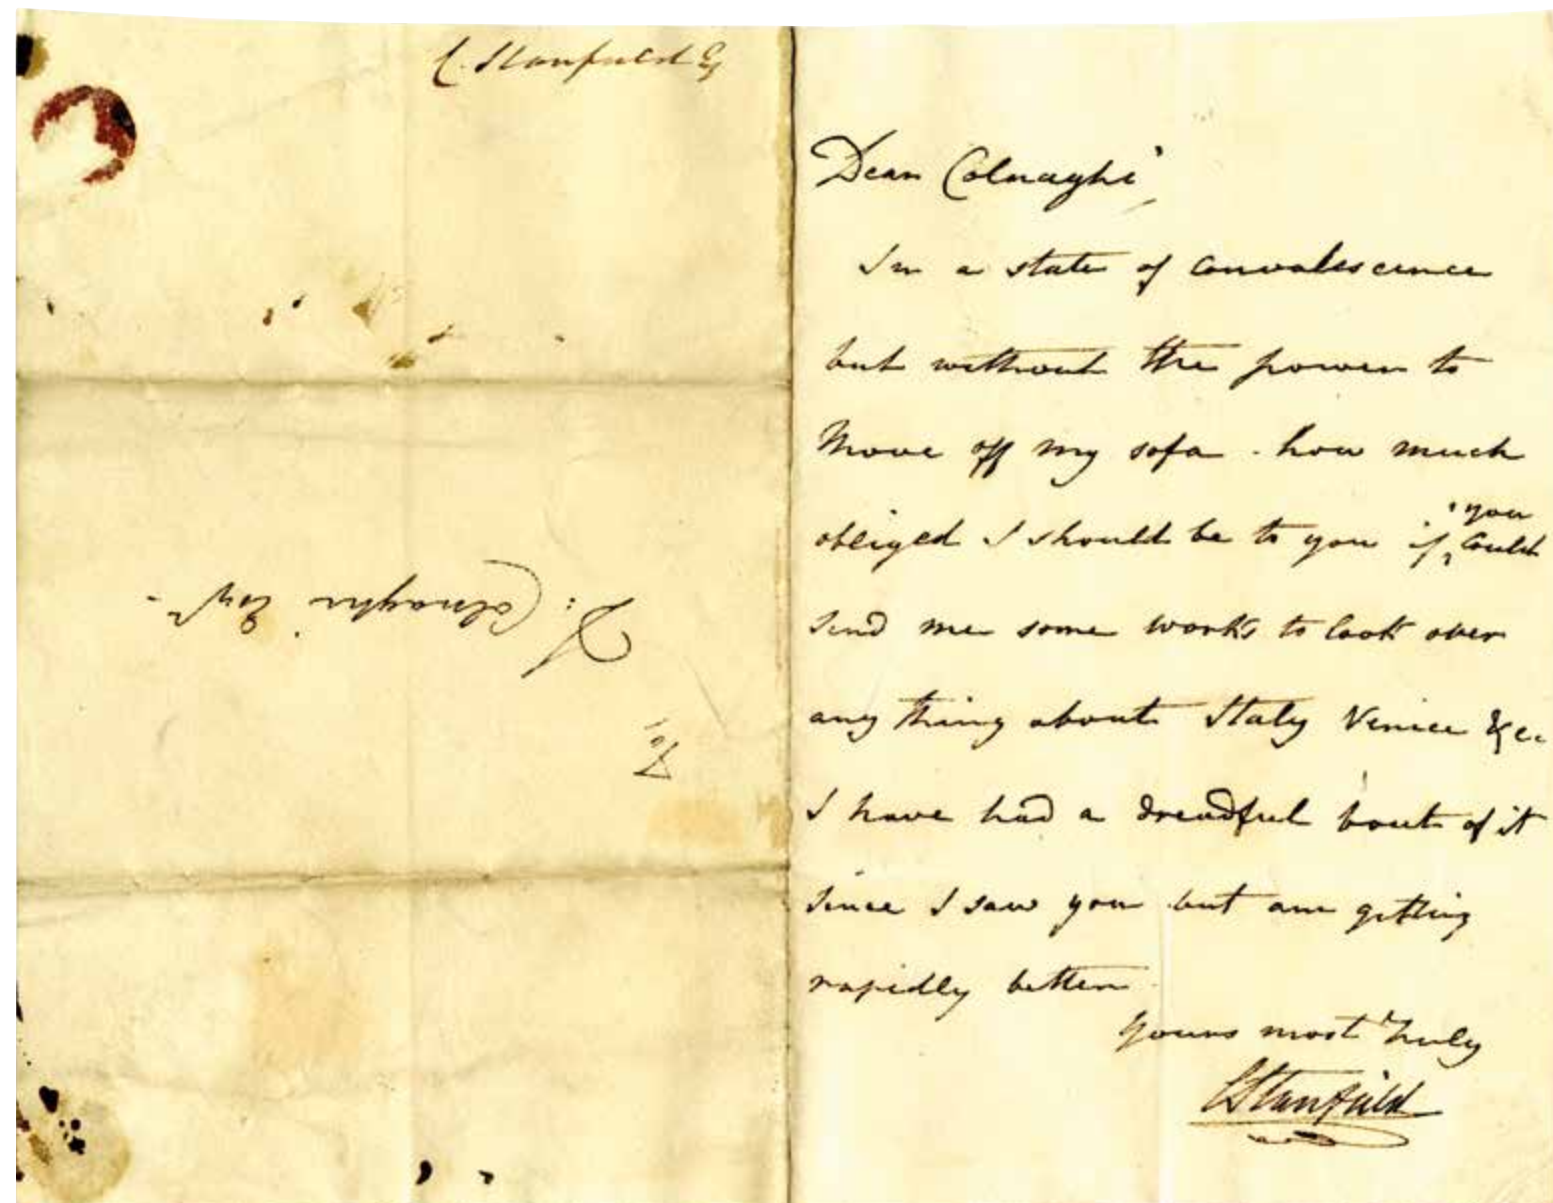 C. Stanfield Esq
To,
D: Colnaghi Esqr
Dear Colnaghi,
In a state of convalescence
but without the power to
move off my sofa. how much
obliged I should be to you if you could
send me some works to look over
any thing about Italy Venice &c.
I have had a dreadful bout of it
since I saw you but am getting
rapidly better.
Yours most truly
CStanfield